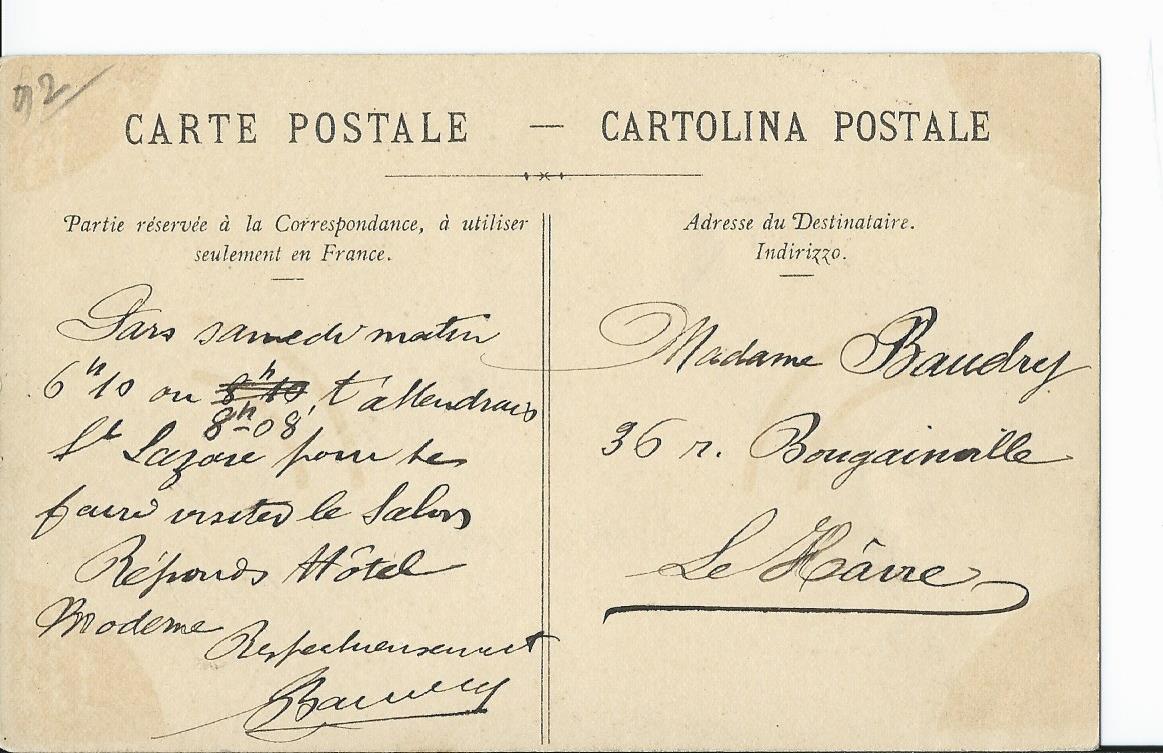 92
CARTE POSTALE — CARTOLINA POSTALE
Partie réservée à la Correspondance, à utiliser
seulement en France.
Pars samedi matin
6h10 ou 8h10, t'attendrais
8h08
St Lazare pour te
faire visiter le Salon
Réponds Hôtel
Moderne
Respectueusement
Adresse du Destinataire.
Indirizzo.
Madame Baudry
36 r. Bougainville
Le Hâvre